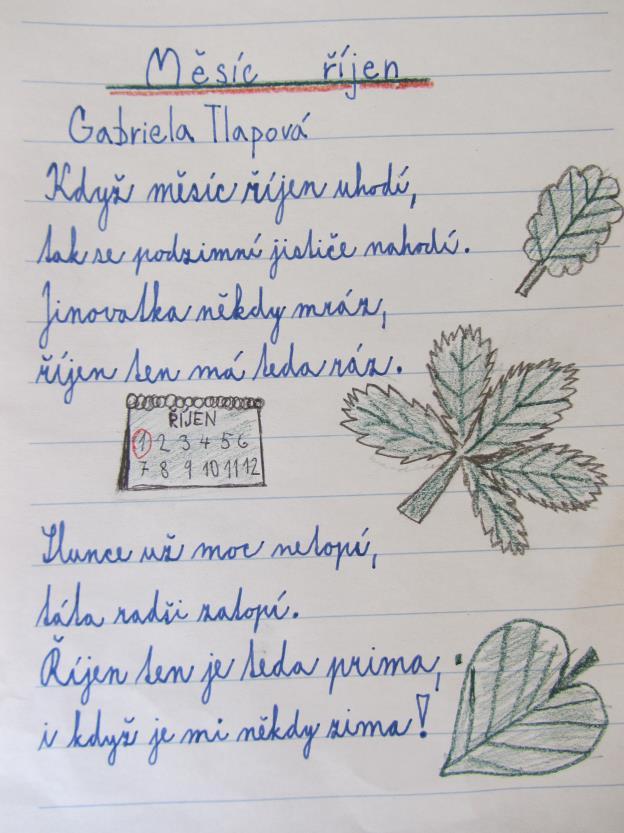 Měsíc říjen
Gabriela Tlapová
Když měsíc říjen uhodí,
tak se podzimní jističe nahodí.
Jinovatka někdy mráz,
říjen ten má teda ráz.
ŘIJEN
1 2 3 4 5 6
7 8 9 10 11 12
Slunce už moc netopí,
táta radši zatopí.
Říjen ten je teda prima,
i když je mi někdy zima!